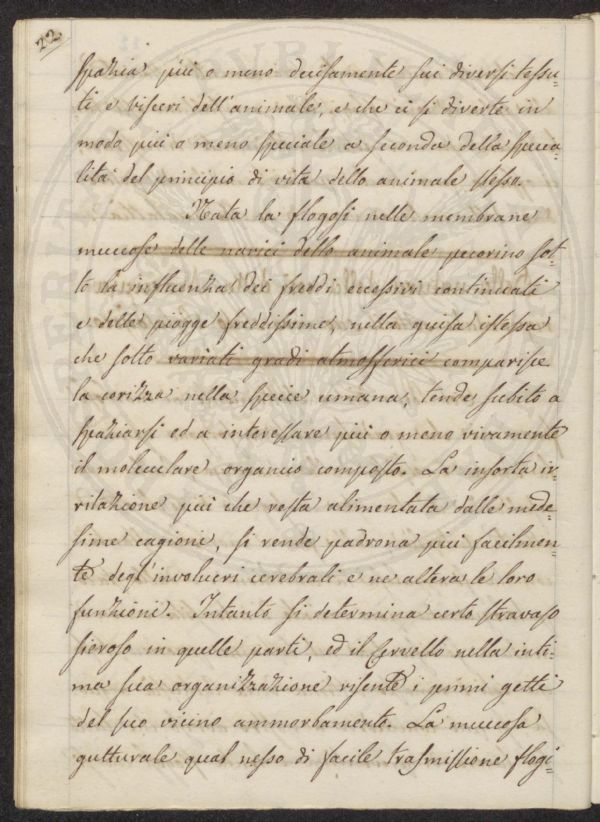 22
spazia più o meno decisamente sui diversi tessu=
ti e visceri dell'animale, e che ci si diverte in
modo più o meno speciale a seconda della specia=
lità del principio di vita dello animale stesso.
Nata la flogosi nelle membrane
muccose delle narici dello animale pecorino sot=
to la influenza dei freddi eccessivi continuati
e delle piogge freddissime, nella guisa istessa
che sotto variati gradi atmosferici comparisce
la corizza nella specie umana, tende subito a
spaziarsi ed a interessare più o meno vivamente
il molecolare organico composto. La insorta ir=
ritazione più che resta alimentata dalle mede=
sime cagioni, si rende padrona più facilmen=
te degl'involucri cerebrali e ne altera le loro
funzioni. Intanto si determina certo stravaso
sieroso in quelle parti, ed il cervello nella inti=
ma sua organizzazione risente i primi getti
del suo vicino ammorbamento. La muccosa
gutturale qual nesso di facile trasmissione flogi=